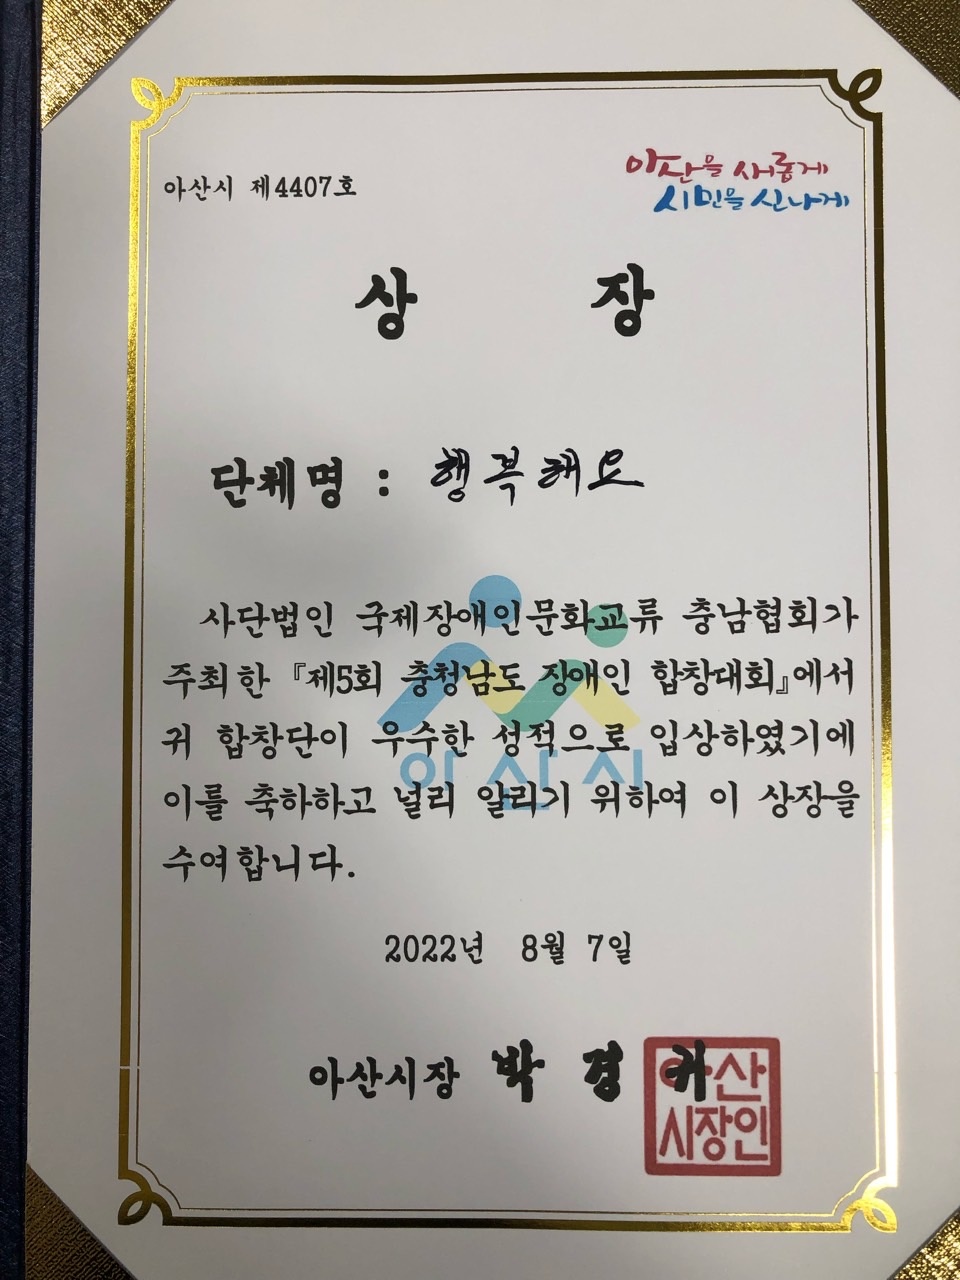 아산시 제4407호
아산을 새롭게
시민을 신나게
상 장
단체명 : 행복해요
사단법인 국제장애인문화교류 충남협회가
주최한 『제5회 충청남도 장애인 합창대회』에서
귀 합창단이 우수한 성적으로 입상하였기에
아산시
이를 축하하고 널리 알리기 위하여 이 상장을
수여합니다.
2022년 8월 7일
아산시장 박 경 귀
아산
시장인